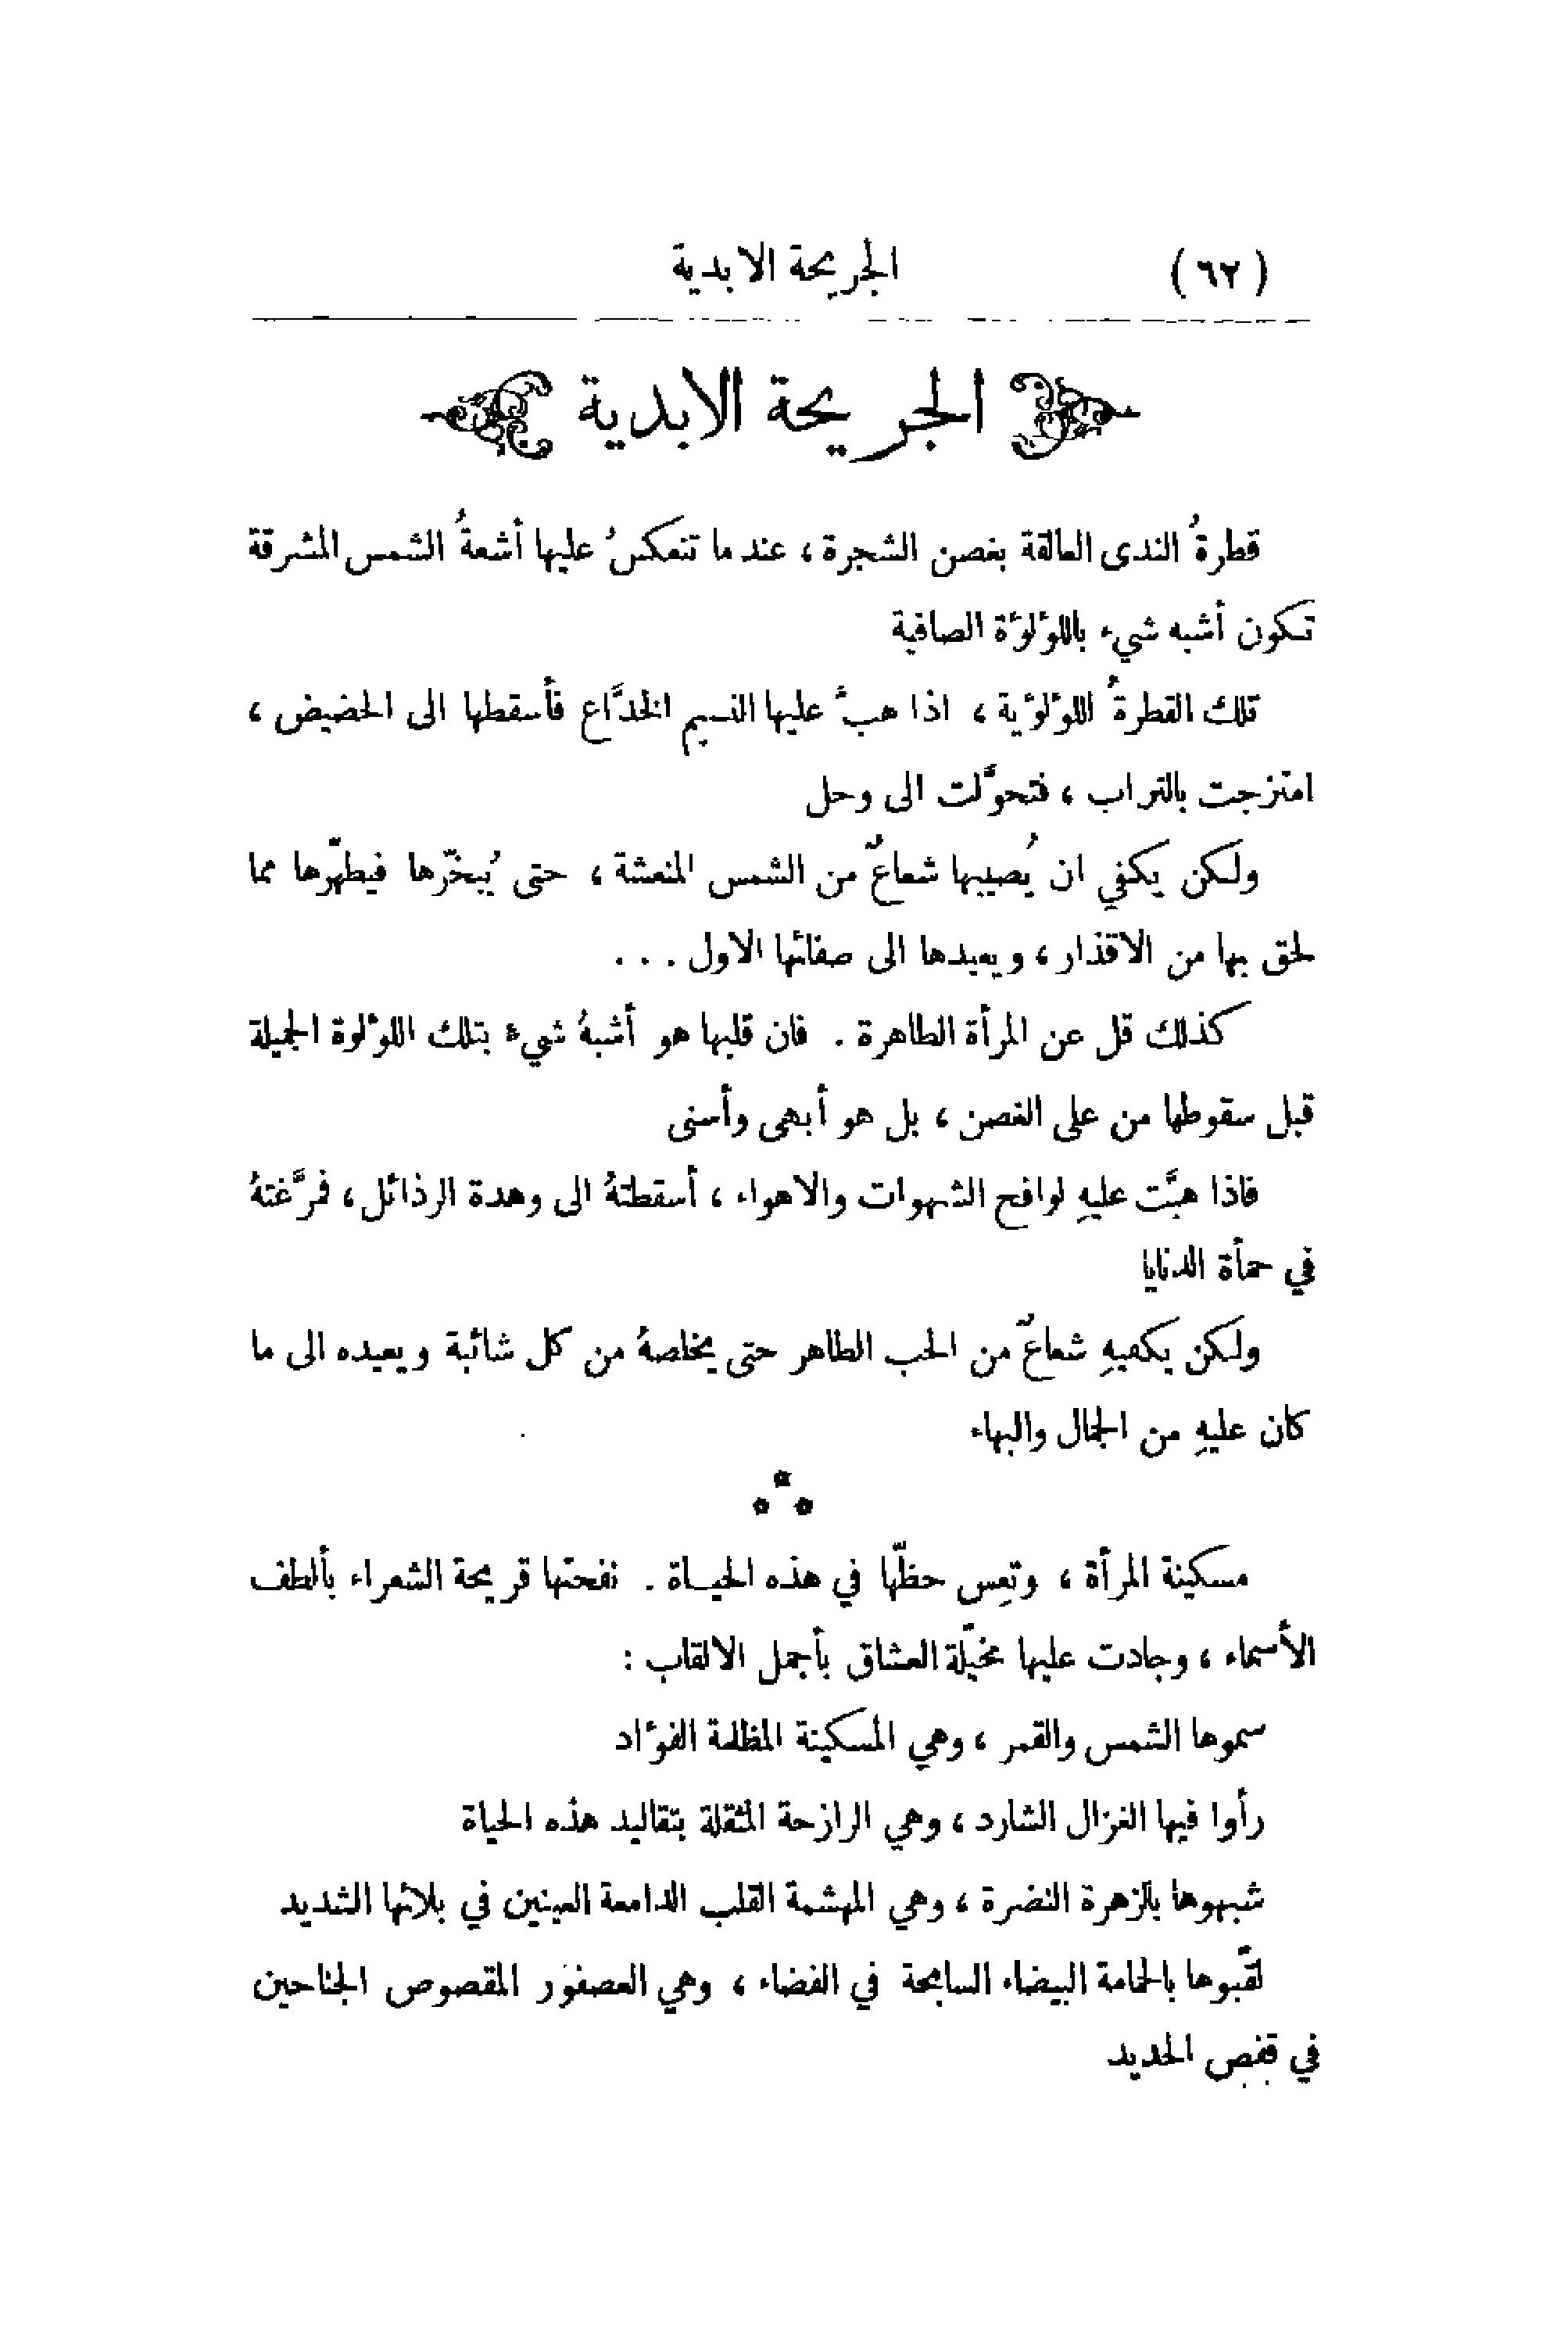 (٦٢) الجريحة الابدية
الجريحة الابدية
قطرةُ الندى العالقة بغصن الشجرة ، عند ما تنعكسُ عليها أشعةُ الشمس المشرقة
تكون أشبه شيء باللوٴلوٴة الصافية
تلك القطرةُ اللوٴلوٴية ، اذا هبَّ عليها النسيم الخدَّاع فأسقطها الى الحضيض ،
امتزجت بالتراب ، فتحوَّلت الى وحل
ولكن يكفي ان يُصيبها شعاعٌ من الشمس المنعشة ، حتى يُبخّرها فيطهّرها مما
لحق بها من الاقذار ، ويعيدها الى صفائها الاول . . .
كذلك قل عن المرأة الطاهرة . فان قلبها هو أشبهُ شيءٌ بتلك اللوٴلوة الجميلة
قبل سقوطها من على الغصن ، بل هو أبهى وأسنى
فاذا هبَّت عليهِ لوافح الشهوات والاهواء ، أسقطتهُ الى وهدة الرذائل ، فمرَّغتهُ
في حمأة الدنايا
ولكن يكفيهِ شعاعٌ من الحب الطاهر حتى يخلصهُ من كل شائبة ويعيده الى ما
كان عليهِ من الجمال والبهاء
* * *
مسكينة المرأة ، وتعِس حظّها في هذه الحيـاة . نفحتها قريحة الشعراء بألطف
الأسماء ، وجادت عليها مخيّلة العشاق بأجمل الالقاب :
سموها الشمس والقمر ، وهي المسكينة المظلمة الفوٴاد
رأوا فيها الغزال الشارد ، وهي الرازحة المثقلة بتقاليد هذه الحياة
شبهوها بالزهرة النضرة ، وهي المهشمة القلب الدامعة العينين في بلائها الشديد
لقّبوها بالحمامة البيضاء السابحة في الفضاء ، وهي العصفور المقصوص الجناحين
في قفص الحديد